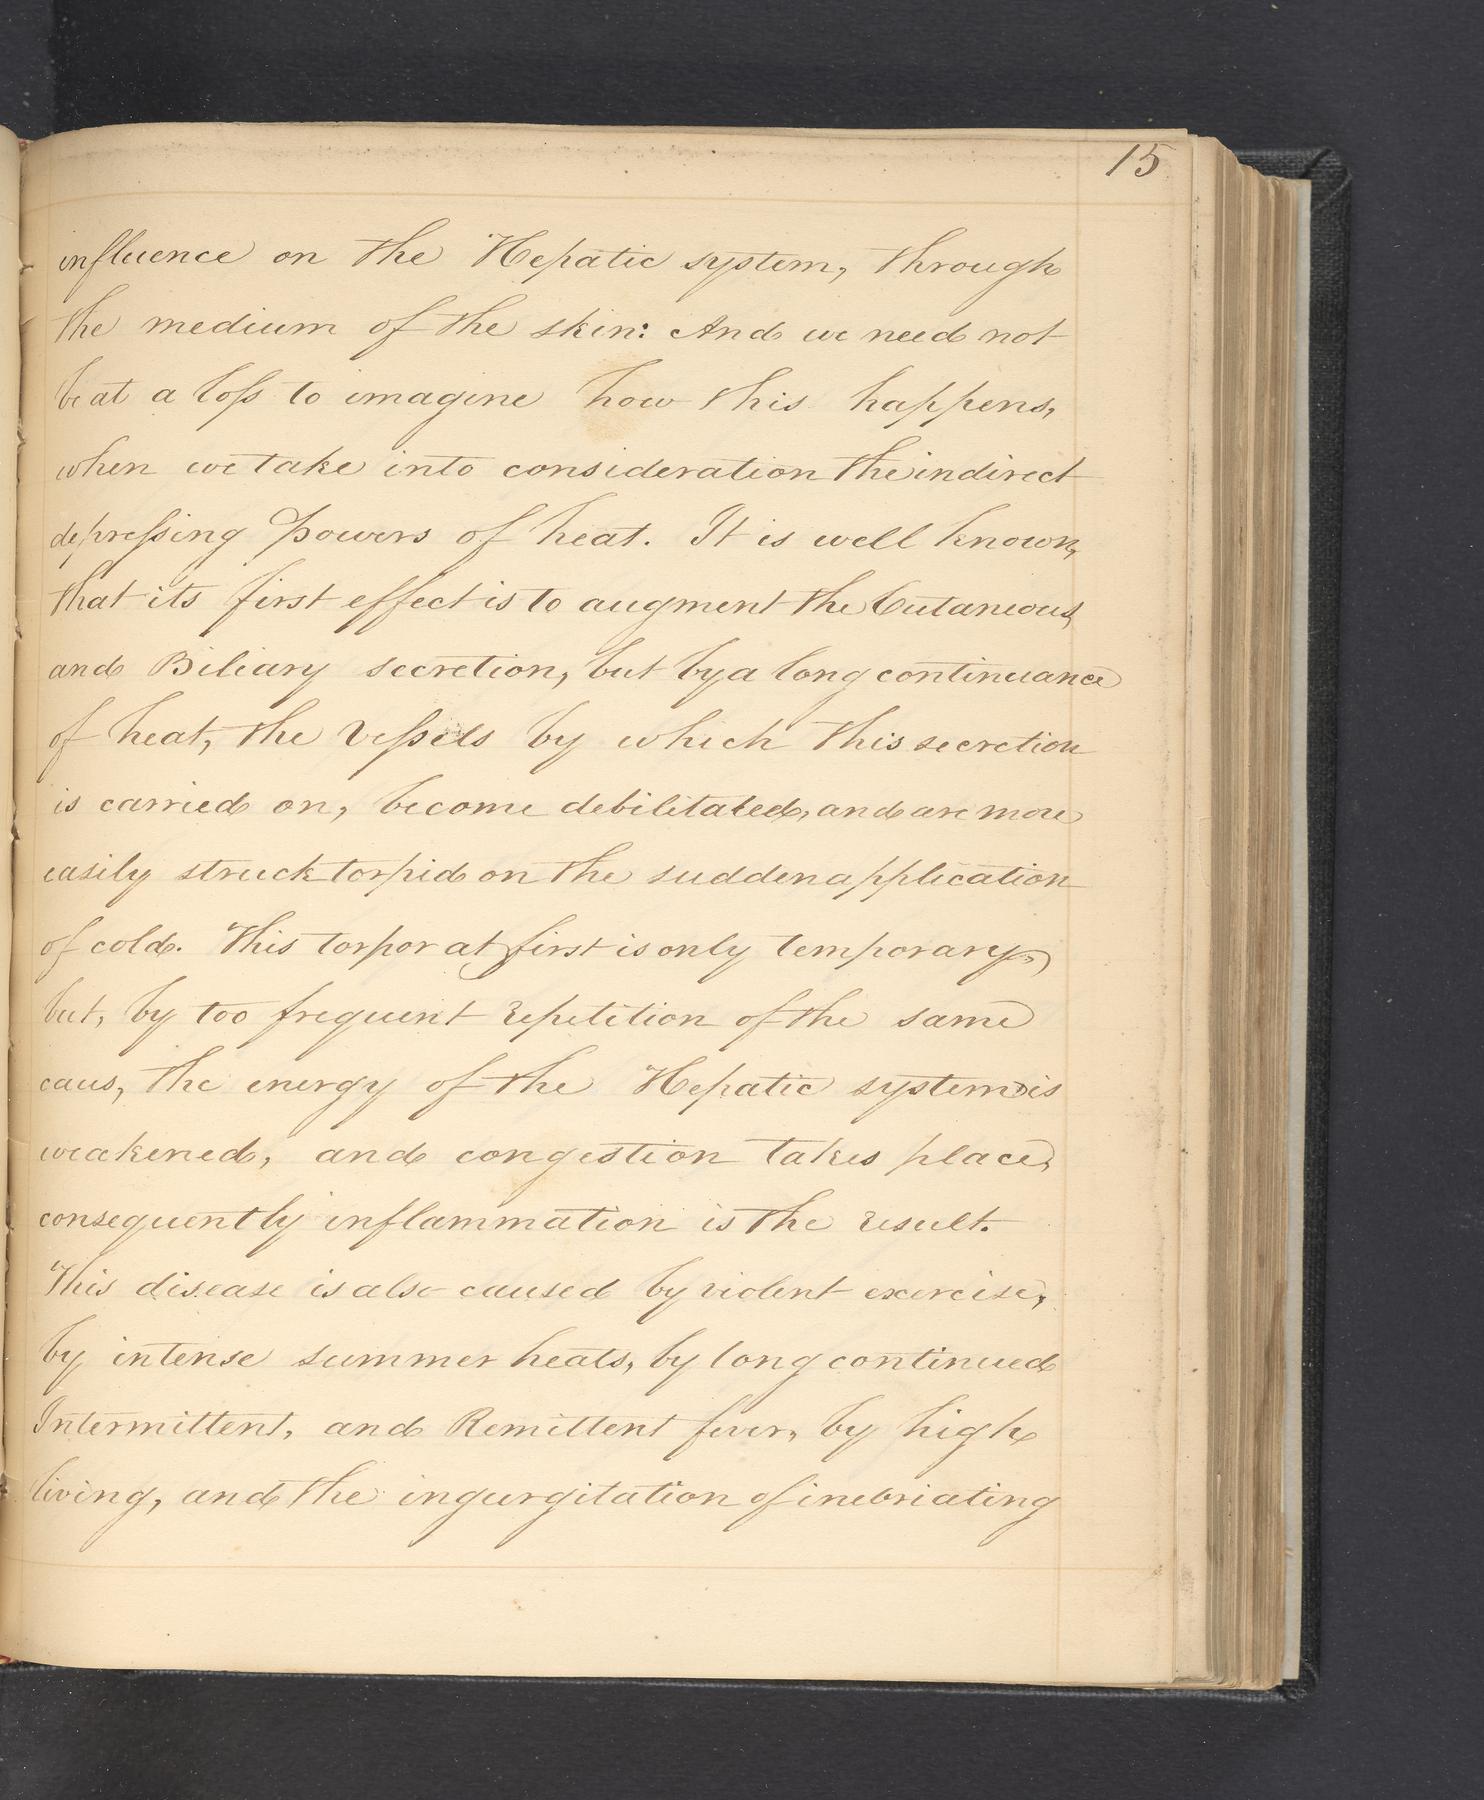 15
influence on the Hepatic system, through
the medium of the skin: And we need not
be at a loſs to imagine how this happens,
when we take into consideration the indirect
depreſsing powers of heat. It is well known,
that its first effect is to augment the Cutaneous,
and Biliary secretion, but by a long continuance
of heat, the veſsels by which this secretion
is carried on, become debilitated, and are more
easily struck torpid on the sudden application
of cold. This torpor at first is only temporary,
but, by too frequent repetition of the same
caus, the energy of the Hepatic system is
weakened, and congestion takes place,
consequently inflammation is the result.
This disease is also caused by violent exercise,
by intense summer heats, by long continued
Intermittent, and Remittent fever, by high
living, and the ingurgitation of inebriating